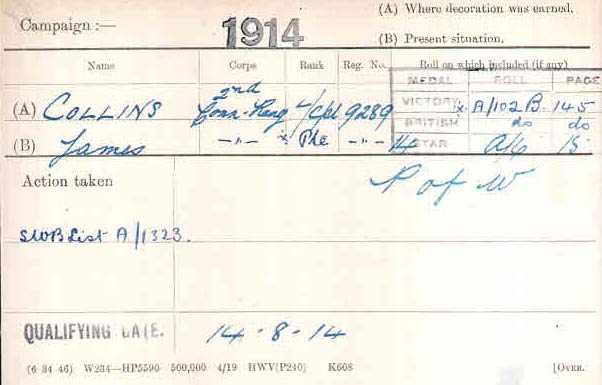 (A) Where decoration was earned.
Campaign :— 1914
(B) Present situation.
Name Corps Rank Reg. No. Roll on which included (if any)
MEDAL ROLL PAGE
2nd
(A) COLLINS Conn. Rang L/Cpl 9289 VICTORY x A/102 B. 145
BRITISH do do
(B) James —"— x Pte —"— 14 STAR A/6 15
Action taken
P of W
SWB List A/1323.
QUALIFYING DATE. 14-8-14
(6 34 46) W234—HP5590 500,000 4/19 HWV(P240) K608 [OVER.